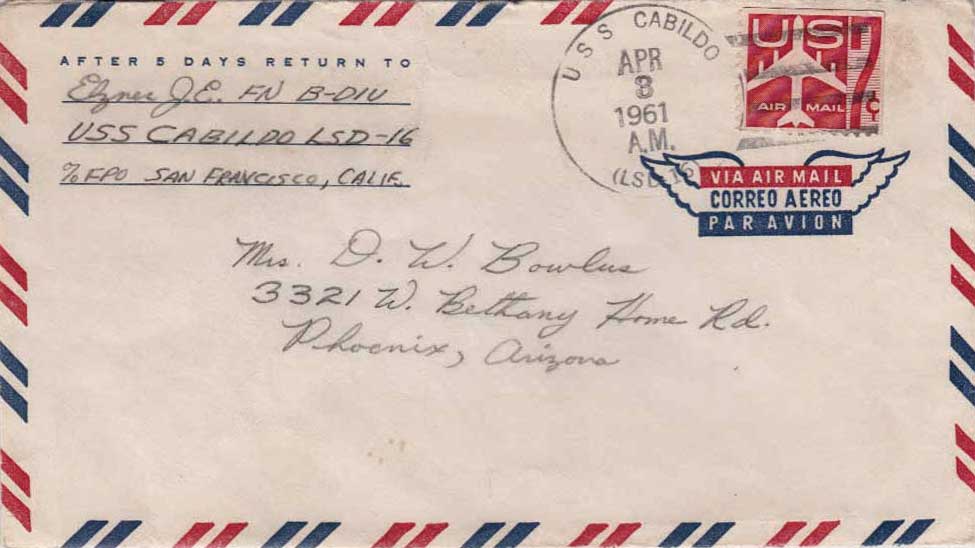 AFTER 5 DAYS RETURN TO
J.E. FN B-DIV
USS CABILDO LSD-16
℅ FPO SAN FRANCISCO, CALIF.
USS CABILDO
APR
3
1961
A.M.
(LSD-16)
US 7¢
AIR MAIL
VIA AIR MAIL
CORREO AEREO
PAR AVION
Mrs. D. W. Bowlus
3321 W. Bethany Home Rd.
Phoenix, Arizona